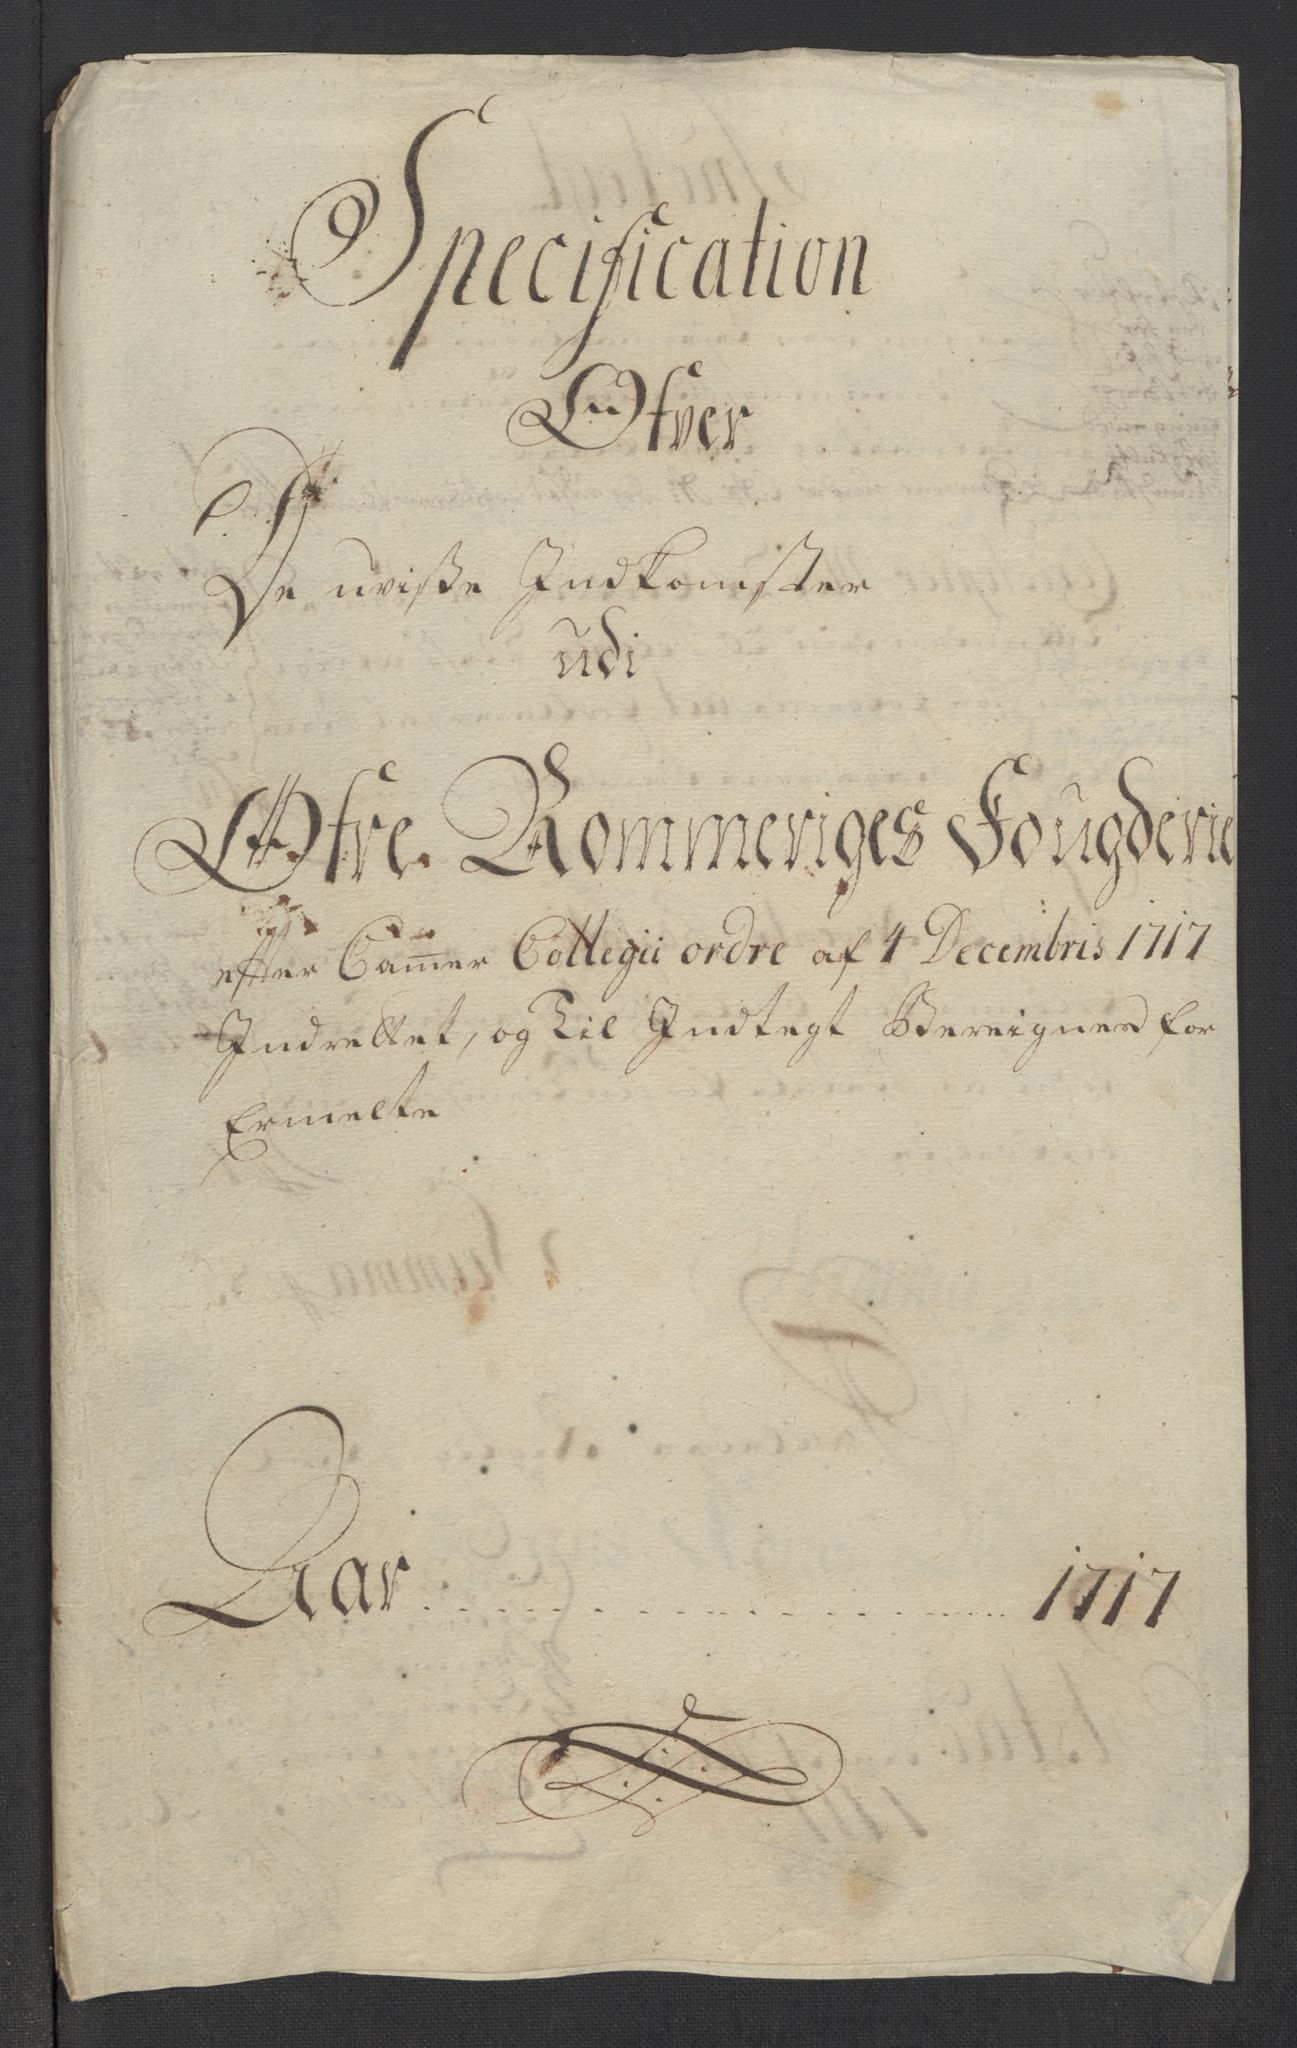 Specification
Ofver
De uviße Indkomster
udi
Øfre Rommeriges Fougderie
efter Cam̄er Collegii ordre af 4 Decembris 1717
Indrettet, og Til Indtegt Bereigned for
Ermelte
Aar 1717